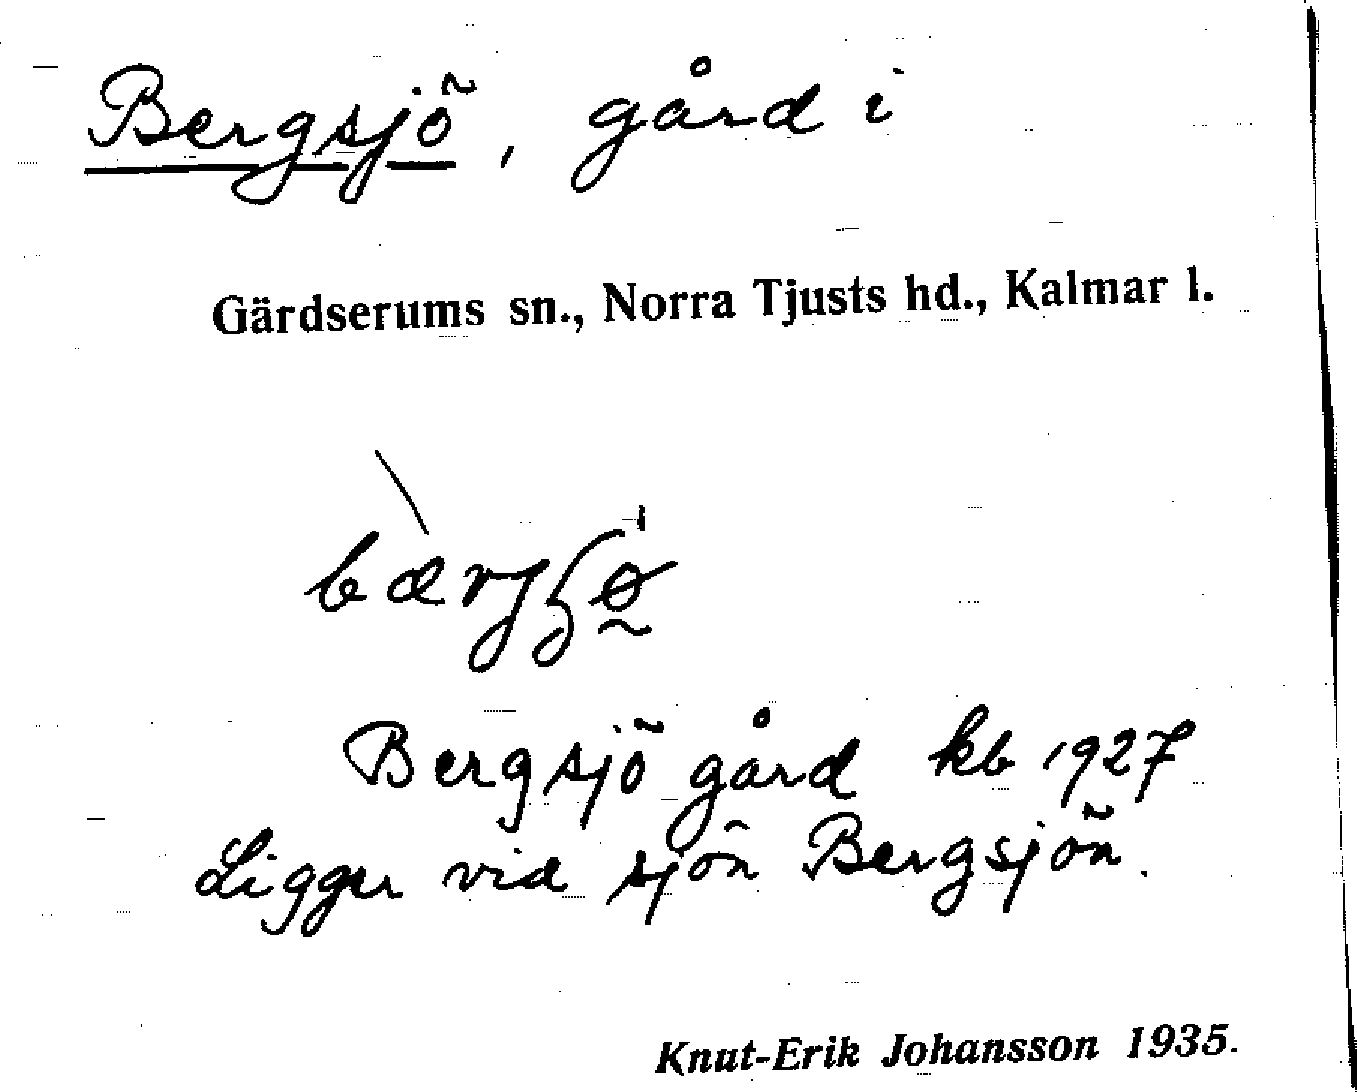 Bergsjö, gård i
Gärdserums sn., Norra Tjusts hd., Kalmar l.
Bergsjö gård kb 1927
Ligger vid sjön Bergsjön.
Knut-Erik Johansson 1935.